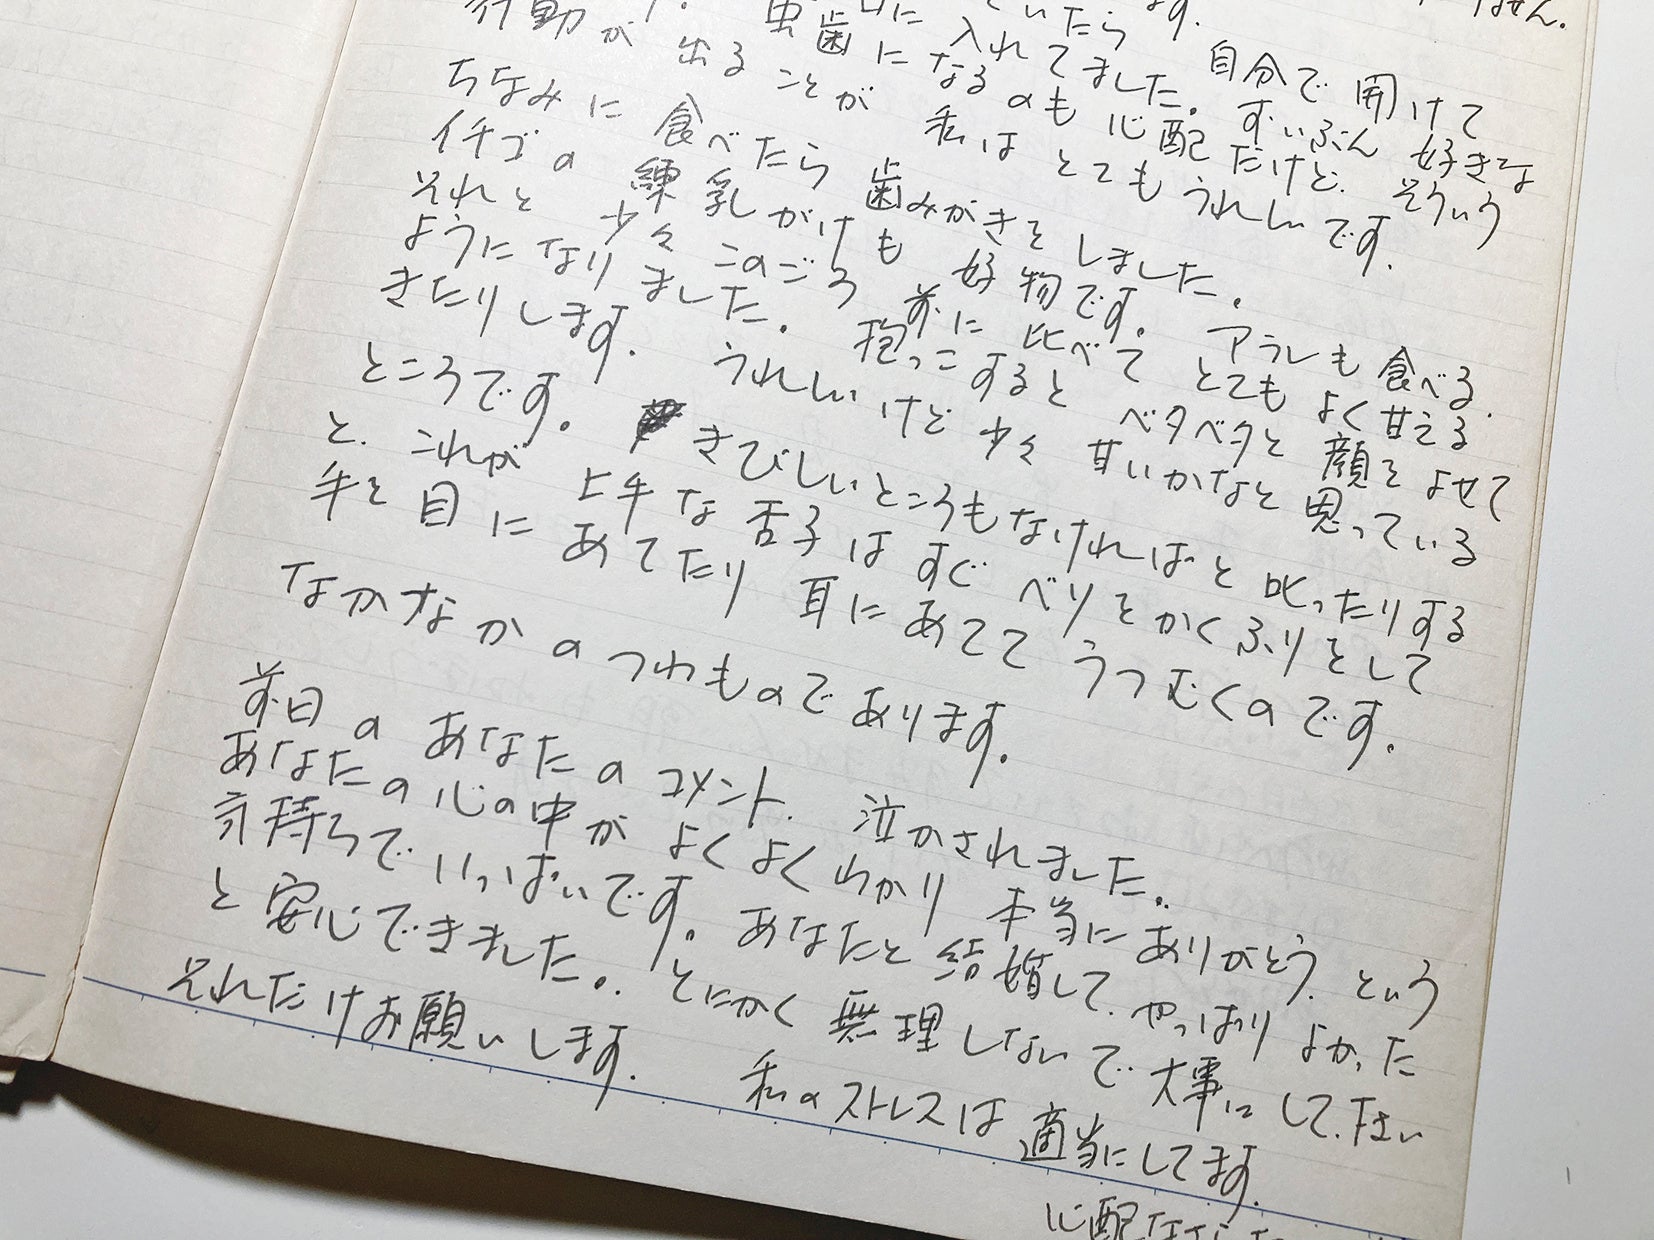 ません。
口に入れてました。自分で開けて
虫歯になるのも心配だけど、ずいぶん好きな
行動が出ることが私はとてもうれしいです。そういう
ちなみに食べたら歯みがきをしました。
イチゴの練乳がけも好物です。アラレも食べる。
それと少々このごろ前に比べてとてもよく甘える
ようになりました。抱っこするとベタベタと顔をよせて
きたりします。うれしいけど少々甘いかなと思っている
ところです。きびしいところもなければと叱ったりする
と、これが上手な舌子はすぐべソをかくふりをして
手を目にあてたり耳にあててうつむくのです。
なかなかのつわものであります。
前日のあなたのコメント、泣かされました。
あなたの心の中がよくよくわかり本当にありがとう、という
気持ちでいっぱいです。あなたと結婚して、やっぱりよかった
と安心できました。とにかく無理しないで大事にして下さい
それだけお願いします。私のストレスは適当にしてます。
心配